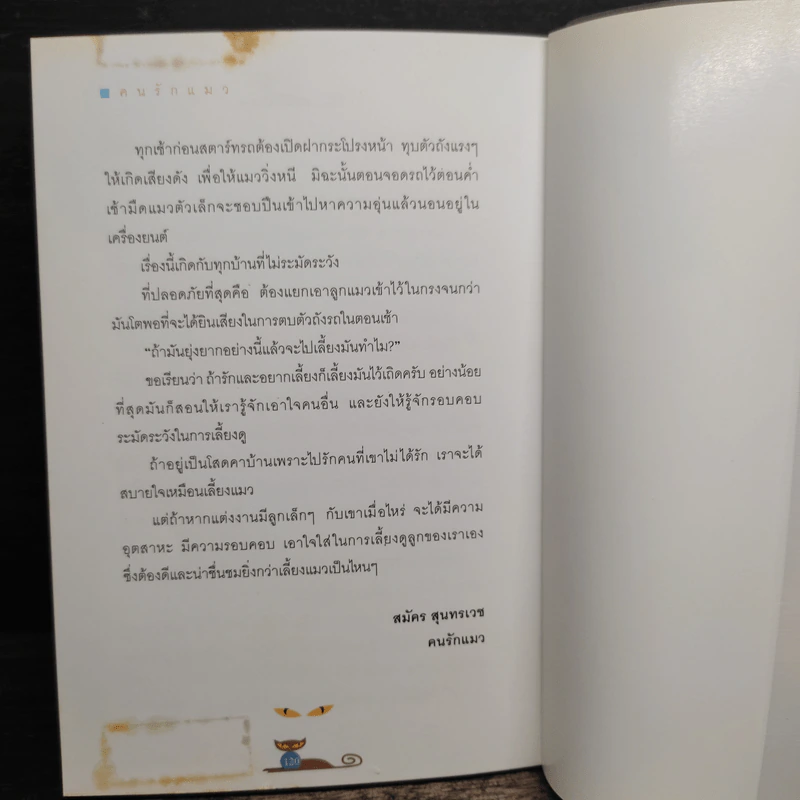 คนรักแมว
ทุกเช้าก่อนสตาร์ทรถต้องเปิดฝากระโปรงหน้า ทุบตัวถังแรงๆ
ให้เกิดเสียงดัง เพื่อให้แมววิ่งหนี มิฉะนั้นตอนจอดรถไว้ตอนค่ำ
เช้ามืดแมวตัวเล็กจะชอบปีนเข้าไปหาความอุ่นแล้วนอนอยู่ใน
เครื่องยนต์
เรื่องนี้เกิดกับทุกบ้านที่ไม่ระมัดระวัง
ที่ปลอดภัยที่สุดคือ ต้องแยกเอาลูกแมวเข้าไว้ในกรงจนกว่า
มันโตพอที่จะได้ยินเสียงในการตบตัวถังรถในตอนเช้า
“ถ้ามันยุ่งยากอย่างนี้แล้วจะไปเลี้ยงมันทำไม?”
ขอเรียนว่า ถ้ารักและอยากเลี้ยงก็เลี้ยงมันไว้เถิดครับ อย่างน้อย
ที่สุดมันก็สอนให้เรารู้จักเอาใจคนอื่น และยังให้รู้จักรอบคอบ
ระมัดระวังในการเลี้ยงดู
ถ้าอยู่เป็นโสดคาบ้านเพราะไปรักคนที่เขาไม่ได้รัก เราจะได้
สบายใจเหมือนเลี้ยงแมว
แต่ถ้าหากแต่งงานมีลูกเล็กๆ กับเขาเมื่อไหร่ จะได้มีความ
อุตสาหะ มีความรอบคอบ เอาใจใส่ในการเลี้ยงดูลูกของเราเอง
ซึ่งต้องดีและน่าชื่นชมยิ่งกว่าเลี้ยงแมวเป็นไหนๆ
สมัคร สุนทรเวช
คนรักแมว
120